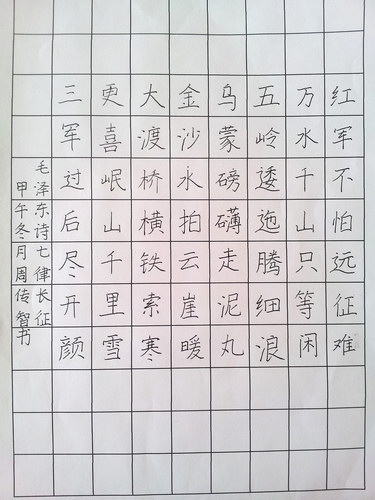 红军不怕远征难
万水千山只等闲
五岭逶迤腾细浪
乌蒙磅礴走泥丸
金沙水拍云崖暖
大渡桥横铁索寒
更喜岷山千里雪
三军过后尽开颜
毛泽东诗七律长征
甲午冬月周传智书